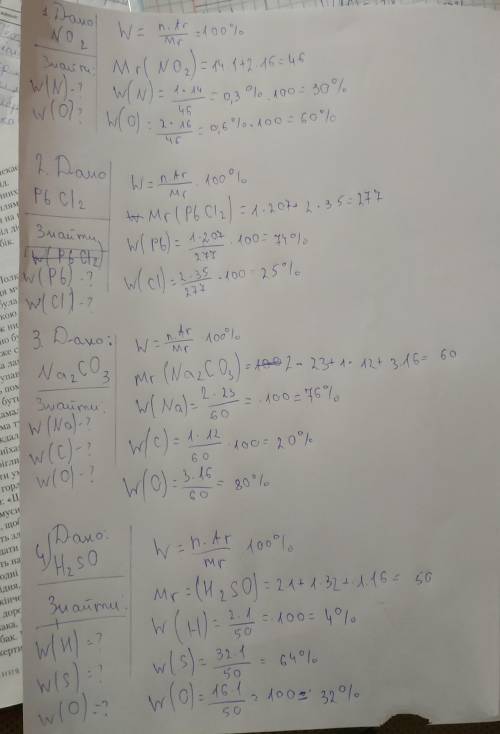 1. Дано
NO2
Знайти:
W(N)-?
W(O)?
W= n.Ar/Mr =100%
Mr(NO2)=14·1+2·16=46
W(N)= 1·14/46 =0,3%·100=30%
W(O)= 2·16/46 =0,6%·100=60%
2. Дано
PbCl2
Знайти
W(PbCl2)
W(Pb)-?
W(Cl)-?
W= n.Ar/Mr ·100%
Mr(PbCl2)=1·207+2·35=277
W(Pb)= 1·207/277 ·100=74%
W(Cl)= 2·35/277 ·100=25%
3. Дано:
Na2CO3
Знайти:
W(Na)-?
W(C)-?
W(O)-?
W= n.Ar/Mr ·100%
Mr(Na2CO3)= 2-23+1·12+3·16= 60
W(Na)= 2·23/60 =·100=76%
W(C)= 1·12/60 ·100=20%
W(O)= 3·16/60 = 80%
4) Дано:
H2SO
Знайти:
W(H)=?
W(S)=?
W(O)=?
W= n.Ar/Mr 100%
Mr=(H2SO)=2·1+1·32+1·16= 50
W(H)= 2·1/50 =·100=4%
W(S)= 32·1/50 = 64%
W(O)= 16·1/50 =100= 32%